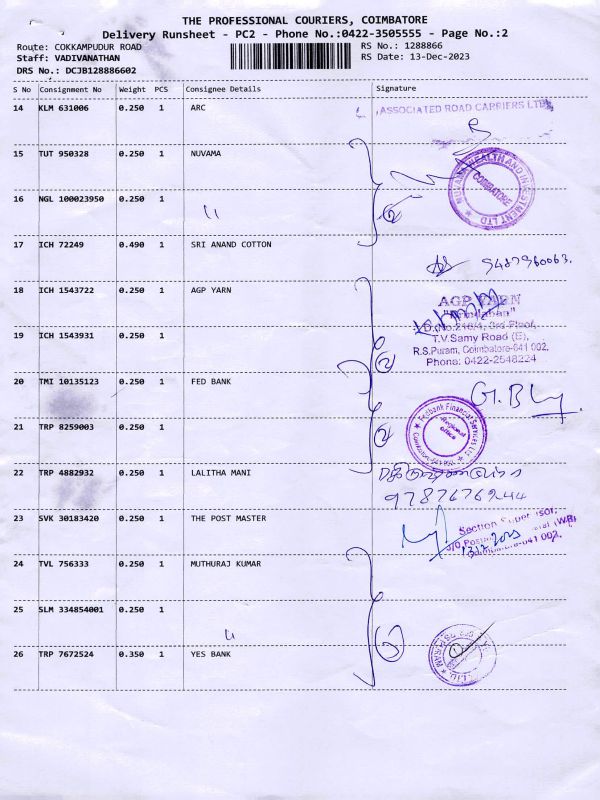 THE PROFESSIONAL COURIERS, COIMBATORE
Delivery Runsheet - PC2 - Phone No.:0422-3505555 - Page No.:2
Route: COKKAMPUDUR ROAD
RS No.: 1288866
Staff: VADIVANATHAN
RS Date: 13-Dec-2023
DRS No.: DCJB128886602
S No Consignment No Weight PCS Consignee Details Signature
14 KLM 631006 0.250 1 ARC
ASSOCIATED ROAD CARRIERS LTD
15 TUT 950328 0.250 1 NUVAMA
NUVAMA WEALTH AND INVESTMENT LTD
COIMBATORE
16 NGL 100023950 0.250 1
17 ICH 72249 0.490 1 SRI ANAND COTTON
9487960063.
18 ICH 1543722 0.250 1 AGP YARN
AGP YARN
D.No.218/4, 3rd Floor,
19 ICH 1543931 0.250 1
T.V.Samy Road (E),
R.S.Puram, Coimbatore-641 002.
Phone: 0422-2548224
20 TMI 10135123 0.250 1 FED BANK
21 TRP 8259003 0.250 1
Fedbank Financial Services Ltd
Regional office
22 TRP 4882932 0.250 1 LALITHA MANI
23 SVK 30183420 0.250 1 THE POST MASTER
Section Supervisor,
24 TVL 756333 0.250 1 MUTHURAJ KUMAR
25 SLM 334854001 0.250 1
26 TRP 7672524 0.350 1 YES BANK